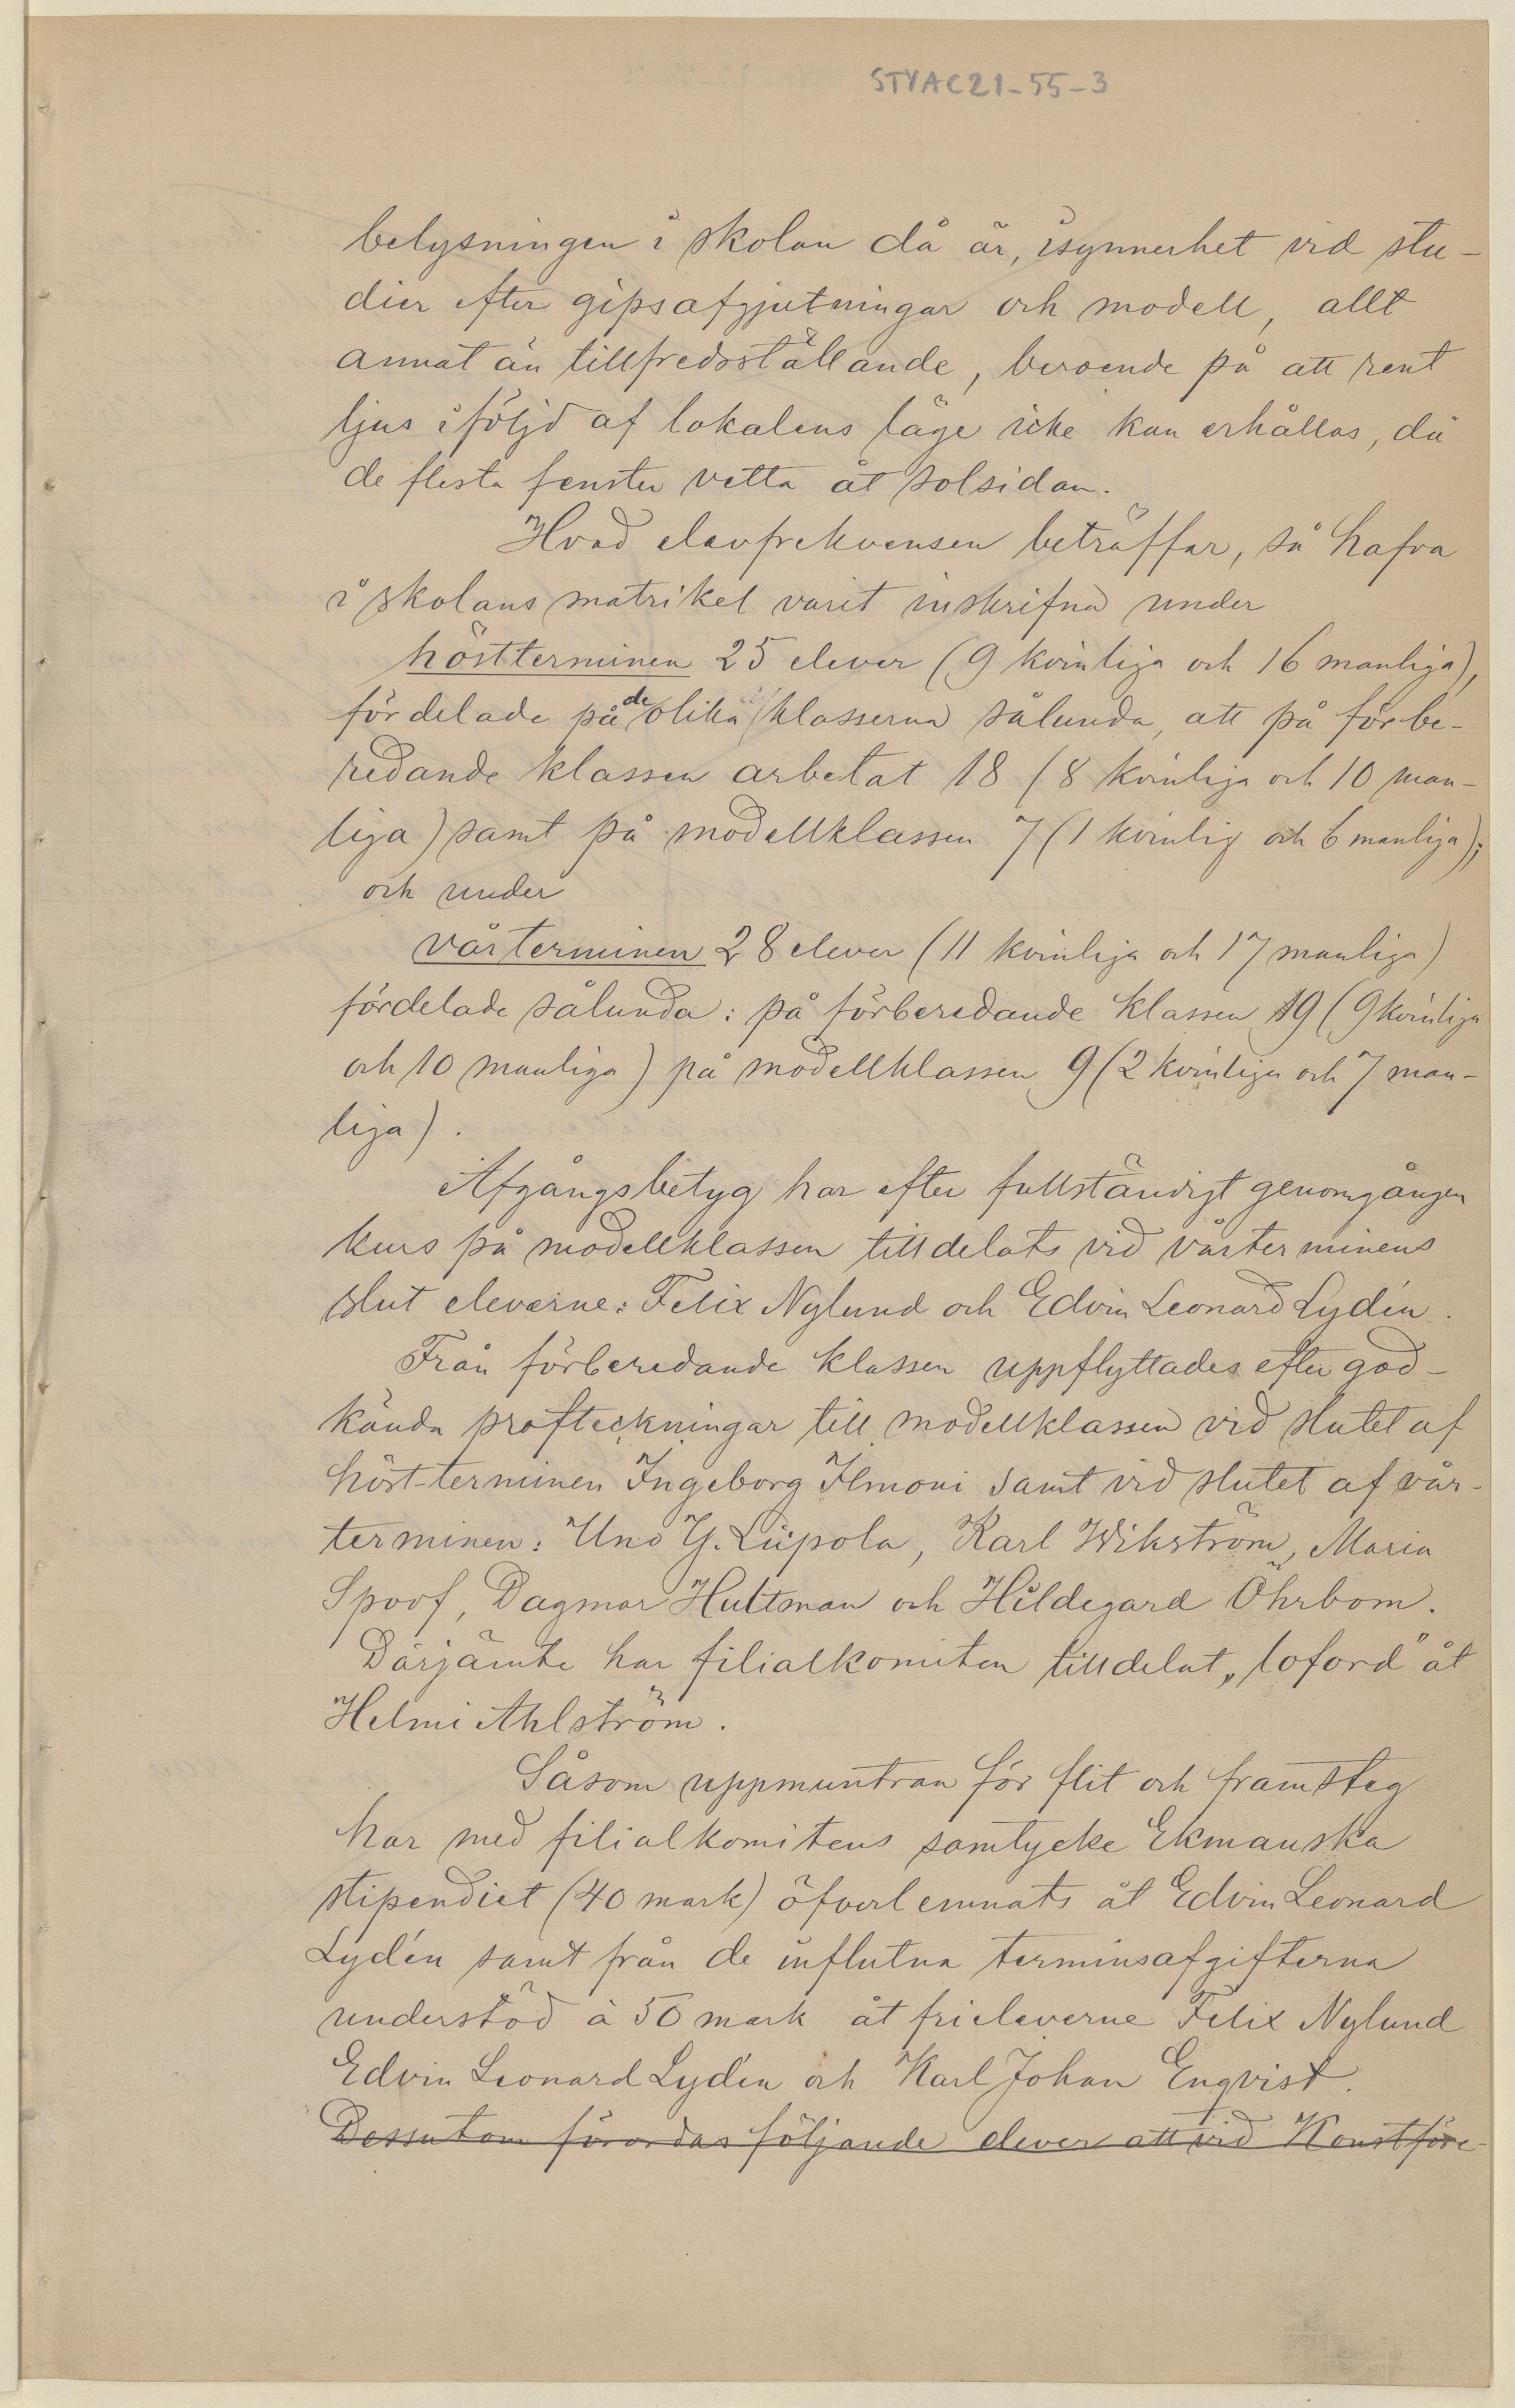 STYAC21-55-3
belysningen i skolan då är, isynnerhet vid stu-
dier efter gipsafgjutningar och modell, allt
annat än tillfredsställande, beroende på att rent
ljus i följd af lokalens läge icke kan erhållas, då
de flesta fenster vetta åt solsidan.
Hvad elevfrekvensen beträffar, så hafva
i skolans matrikel varit inskrifna under
höstterminen 25 elever (9 kvinliga och 16 manliga),
fördelade på de olika klasserna sålunda, att på förbe-
redande klassen arbetat 18 (8 kvinliga och 10 man-
liga) samt på modellklassen 7 (1 kvinlig och 6 manliga);
och under
vårterminen 28 elever (11 kvinliga och 17 manliga)
fördelade sålunda: på förberedande klassen 19 (9 kvinliga
och 10 manliga) på modellklassen 9 (2 kvinliga och 7 man-
liga).
Afgångsbetyg har efter fullständigt genomgången
kurs på modellklassen tilldelats vid vårterminens
slut eleverne: Felix Nylund och Edvin Leonard Lydén.
Från förberedande klassen uppflyttades efter god-
kända profteckningar till modellklassen vid slutet af
höst-terminen Ingeborg Ilmoni samt vid slutet af vår-
terminen: Uno Y. Liipola, Karl Wikström, Maria
Spoof, Dagmar Hultman och Hildegard Öhrbom.
Därjämte har filialkomitén tilldelat „loford" åt
Helmi Ahlström.
Såsom uppmuntran för flit och framsteg
har med filialkomitens samtycke Ekmanska
stipendiet (40 mark) öfverlemnats åt Edvin Leonard
Lydén samt från de influtna terminsafgifterna
understöd à 50 mark åt frieleverne Felix Nylund
Edvin Leonard Lydén och Karl Johan Enqvist.
Dessutom förordas följande elever att vid Konstföre-